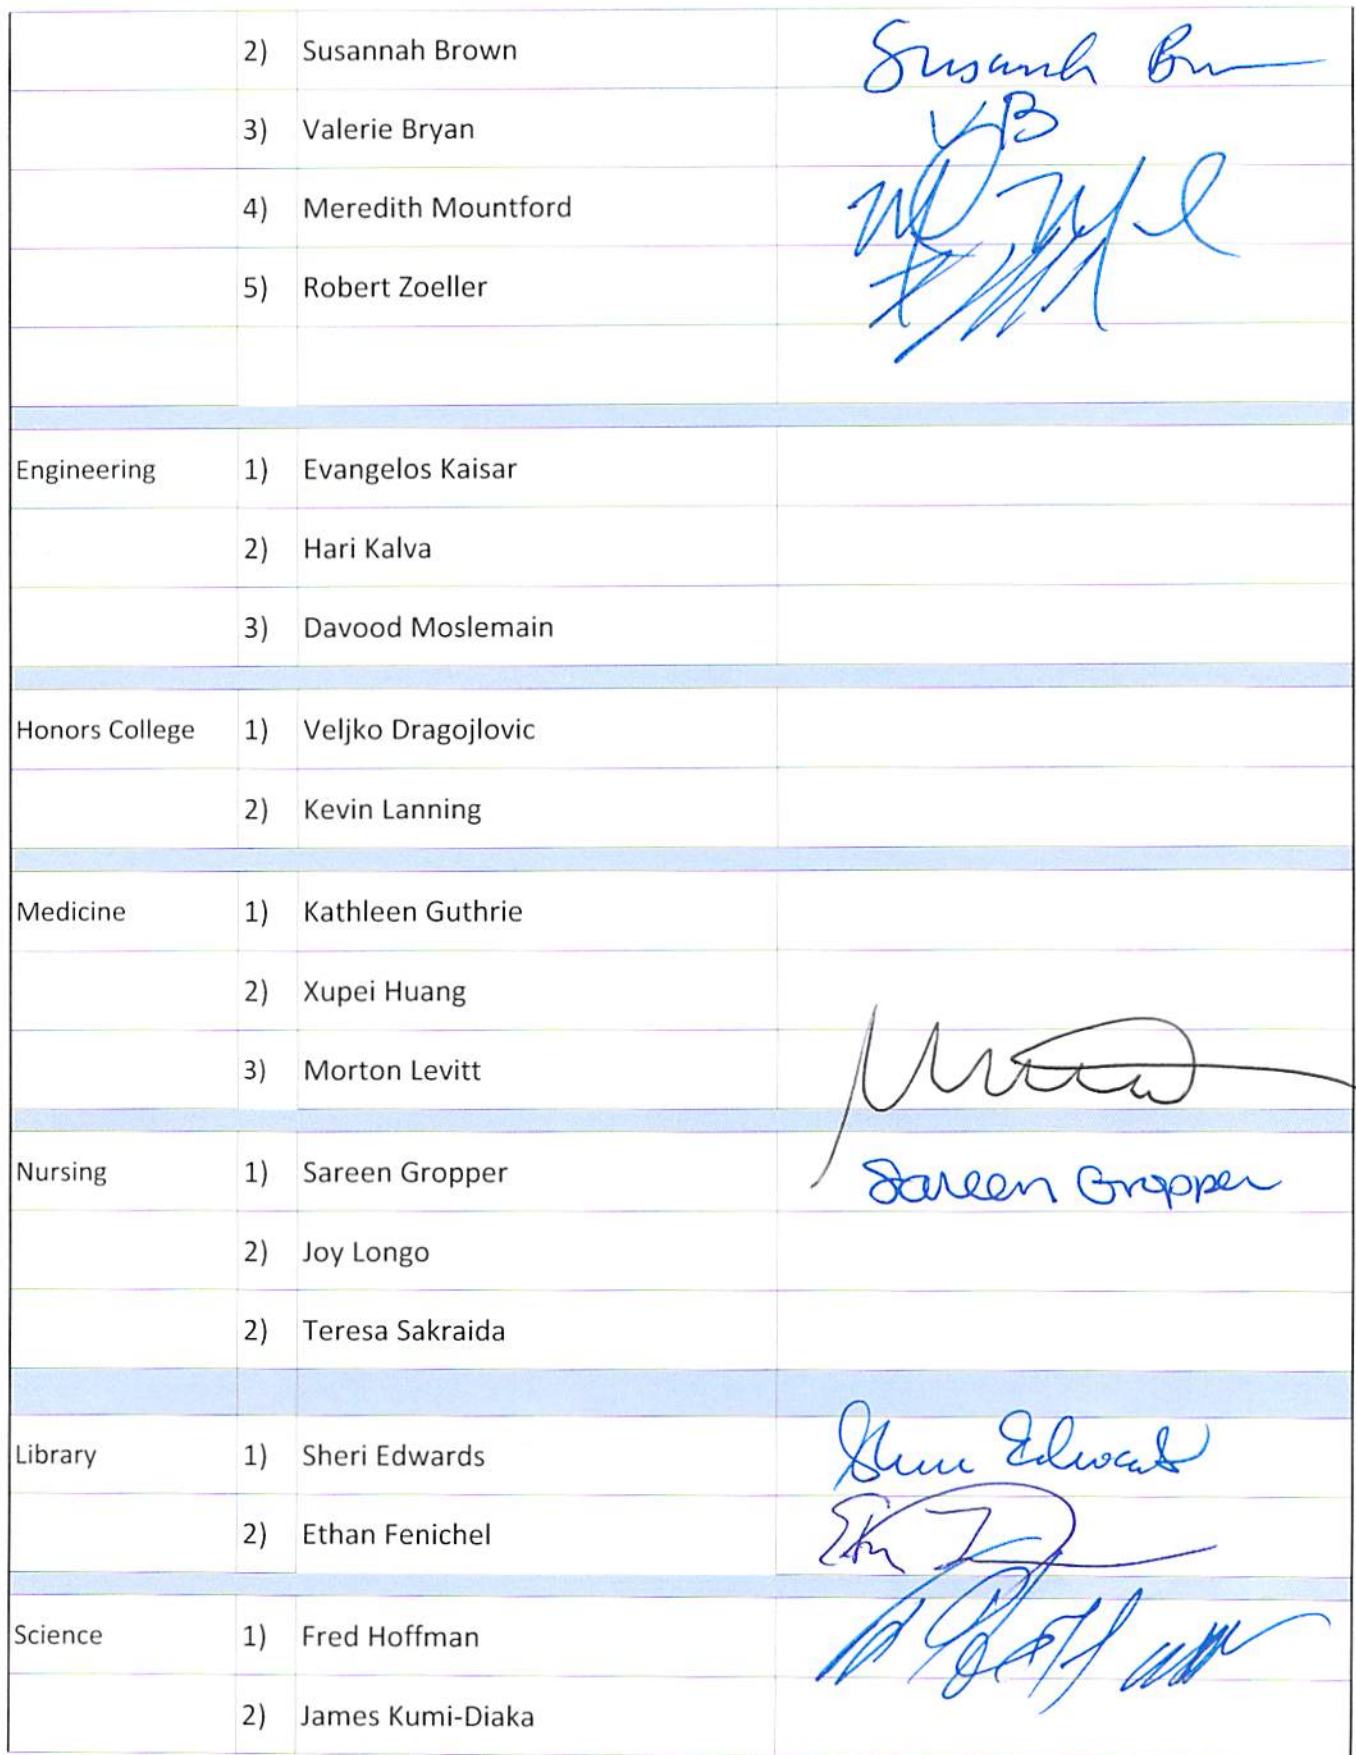 2) Susannah Brown Susannah Br
3) Valerie Bryan VB
4) Meredith Mountford
5) Robert Zoeller
Engineering 1) Evangelos Kaisar
2) Hari Kalva
3) Davood Moslemain
Honors College 1) Veljko Dragojlovic
2) Kevin Lanning
Medicine 1) Kathleen Guthrie
2) Xupei Huang
3) Morton Levitt
Nursing 1) Sareen Gropper Sareen Gropper
2) Joy Longo
2) Teresa Sakraida
Library 1) Sheri Edwards Sheri Edwards
2) Ethan Fenichel
Science 1) Fred Hoffman
2) James Kumi-Diaka